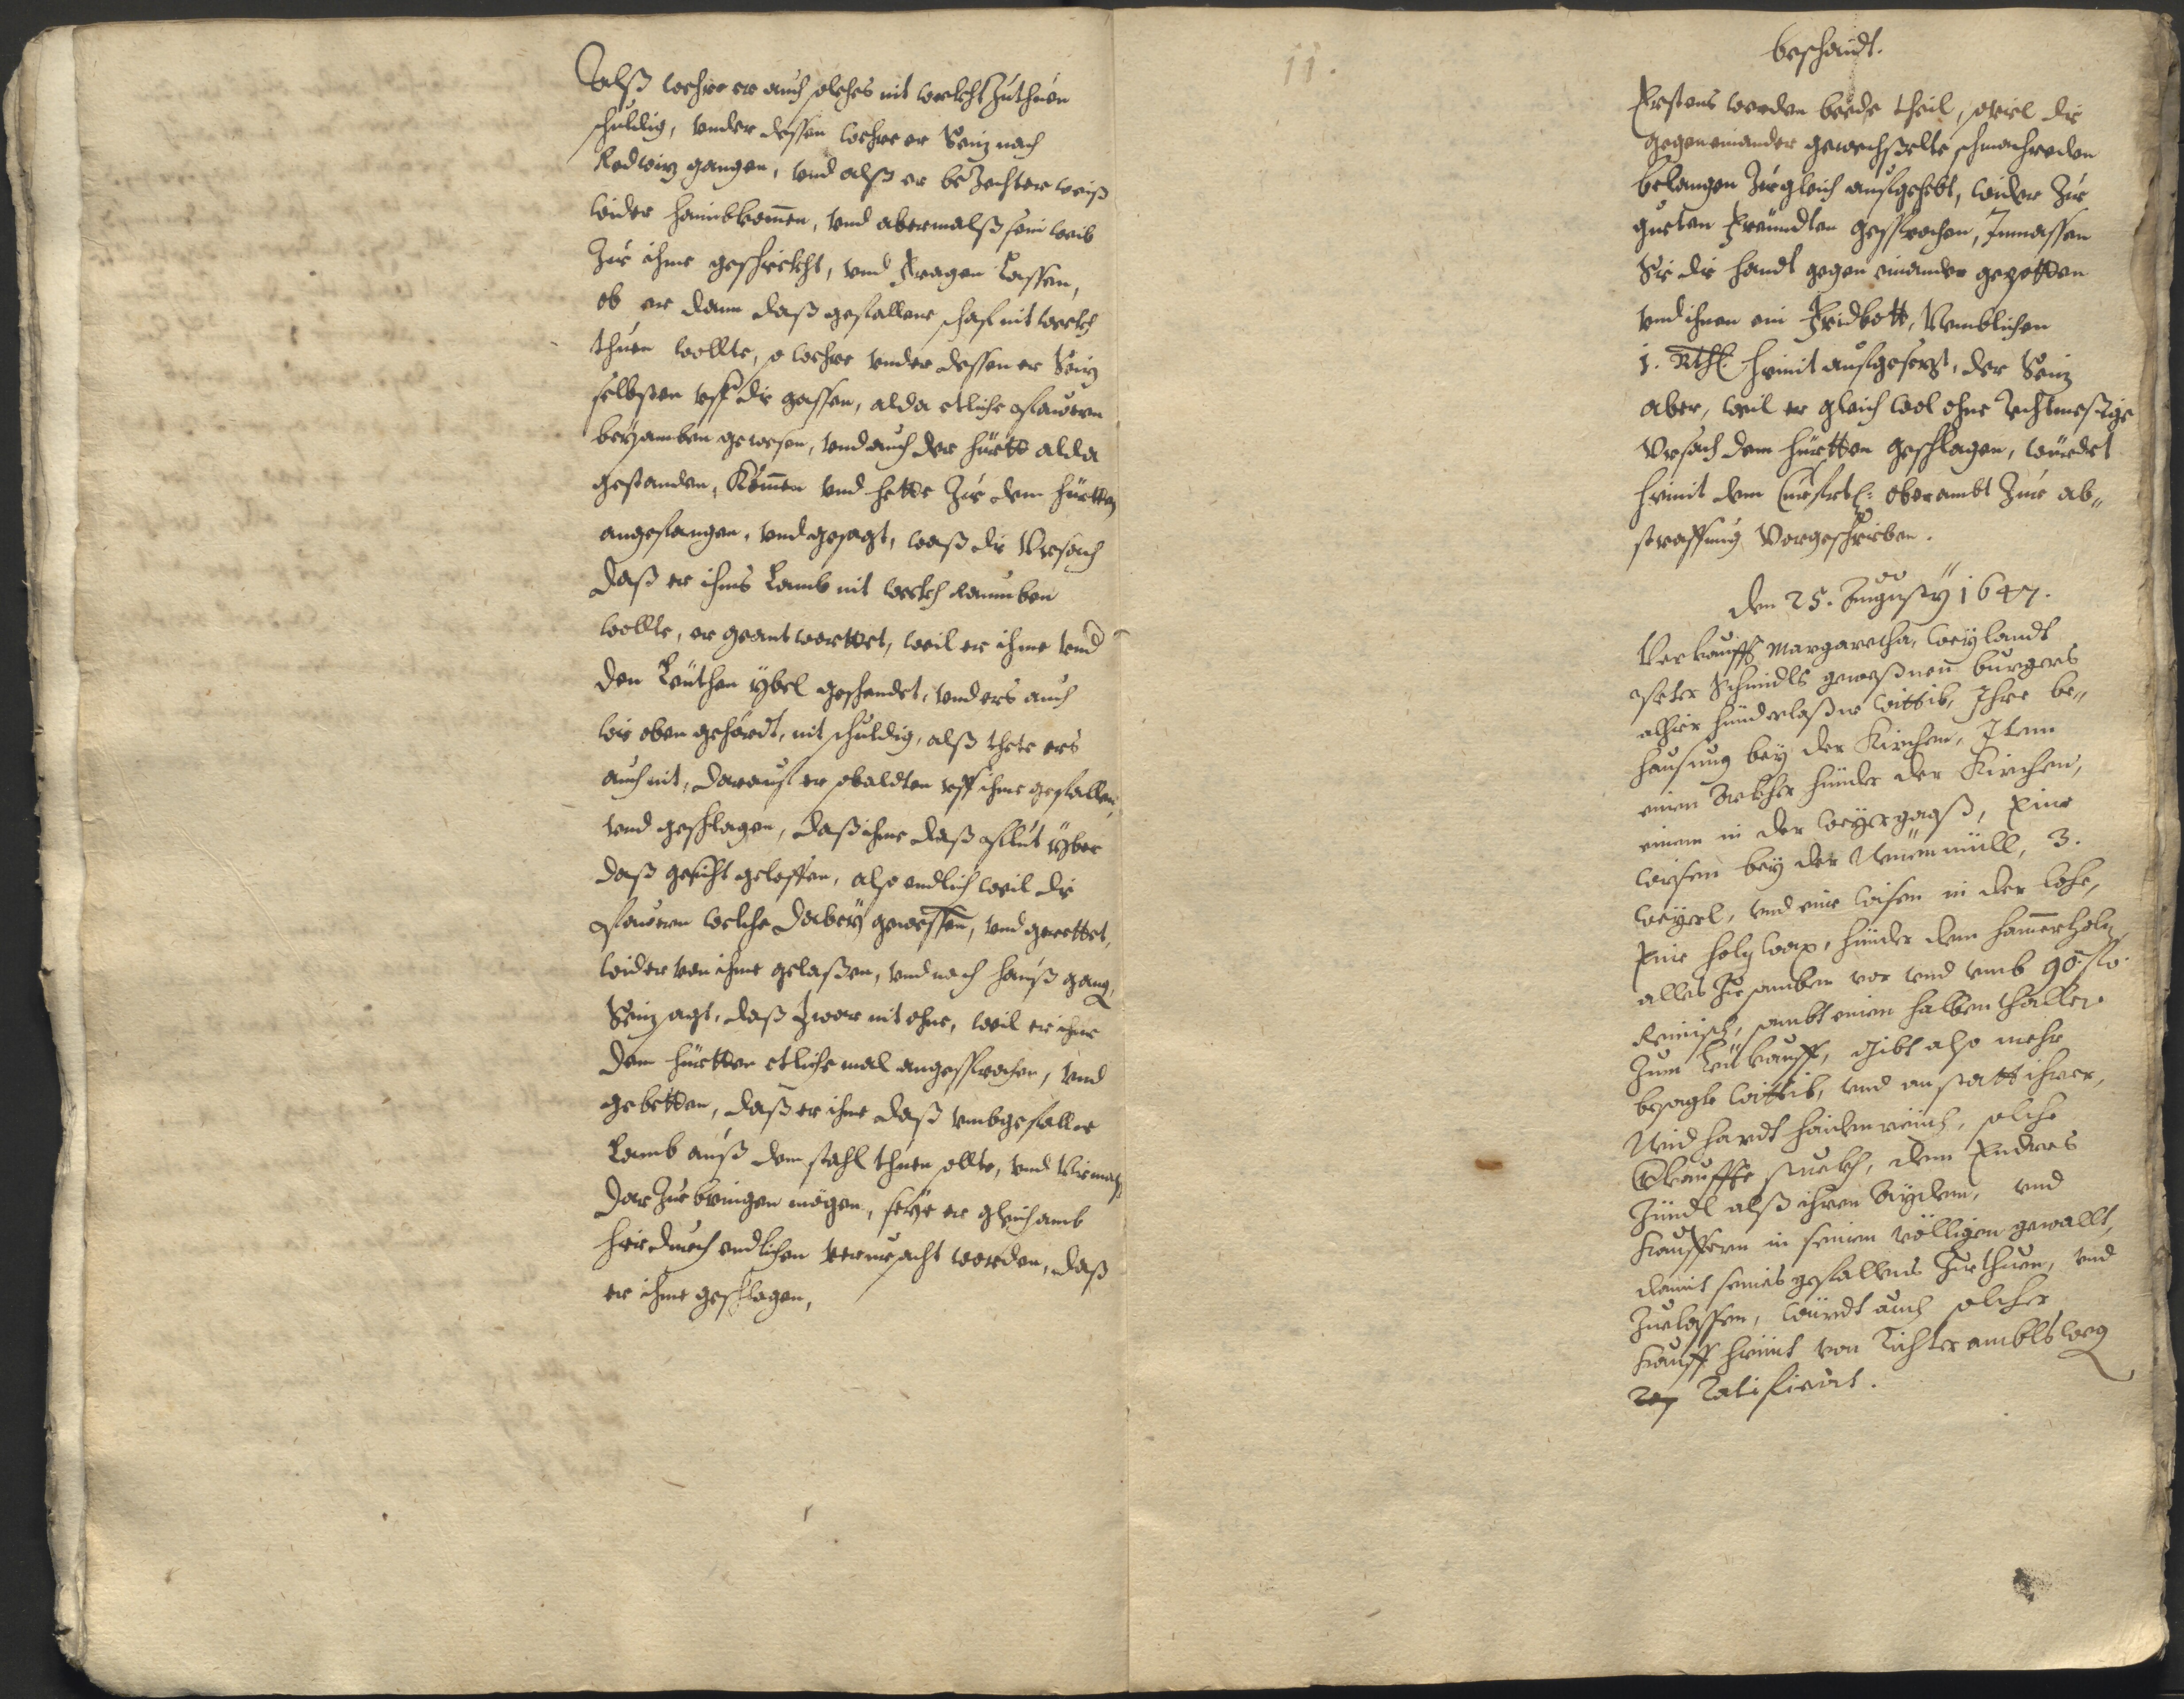 Alß wehre er auch solches nit weckht Zuthuen
schuldig, vnder dessen wehre er Seiz nach
Redwiz gangen, vnd alß er beZechter weiß
wider heimbkommen, vnd abermalß sein weib
Zue ihme geschickht, vnd fragen lassen,
ob er dann daß gefallene schaf nit weckh
thuen wollte, so wehre vnder dessen er Seiz
selbsten vff die gassen, alda etliche Pauern
beysamben gewesen, vnd auch der hürtt alda
gestanden, Kommen vnd hette Zue dem hürtten
angefangen, vnd gesagt, waß die Vrsach
daß er ihms Lamb nit weckh raumben
wollte, er geantworttet, weil er ihme vnd
den Leuthen ybel geschendet, vnd ers auch
wie oben gehördt, nit schuldig, alß thete ers
auch nit, darauf er sobaldten vff ihme gefallen,
vnd geschlagen, daß ihme daß Pluet yber
daß gesicht geloffen, also endlich weil die
Pauern welche dabey gewessen, vnd gerettet,
wider von ihme gelaßen, vnd nach hauß gang.
Seiz sagt, daß Zwar nit ohne, weil er ihne
dem hürtten etliche mal angesprochen, vnd
gebetten, daß er ihme daß vmbgefallne
Lamb auß dem stahl thuen sollte, vnd Niemalß
darZue bringen mögen, seye er gleichsamb
hierdurch endlichen verursacht worden, daß
er ihme geschlagen,
11.
beschaidt.
Erstens werden beede theil, soviel die
gegeneinander gewechßelte schmachreden
belangen Zuegleich aufgehebt, wider Zue
gueten freundten gesprochen, Inmassen
Sie die handt gegen einander gebotten
vnd ihnen ein fridbott, Nemblichen
1. Rthl: hiemit aufgesezt, der Seiz
aber, weil er gleichwol ohne rechtmessige
Vrsach dem hürtten geschlagen, würdet
hiemit dem Churfrtl: oberambt Zue ab„
straffung Vorgeschrieben.
den 25. Augusty 1647.
Verkaufft Margaretha, weylandt
Peter Schmidls geweßnen burgers
alhier hinderlaßne wittib, Ihre be„
hausung bey der Kirchen, Item
einen Ackher hinder der Kirchen,
einen in der weyergaß, Eine
wisen bey der Neuenmüll, 3.
weyerl, vnd eine wisen in der lohe,
Eine holzwax, hinder dem hammerholz,
alles Zuesamben vor vnd vmb 90. fl.
Reinisch, sambt einem halben thaller
Zum Leukauff, gibt also mehr
besagte wittib, vnd anstatt ihrer,
Neidhardt haidenreich, solche
Erkauffte stuckh, dem Endres
Zündl alß ihren Ayden, vnd
Kauffern in seinen völligen gewallt,
damit seines gefallens Zuethuen, vnd
Zuelassen, würdt auch solcher
Kauff hiemit von Richter ambts weg
Ratificiert.